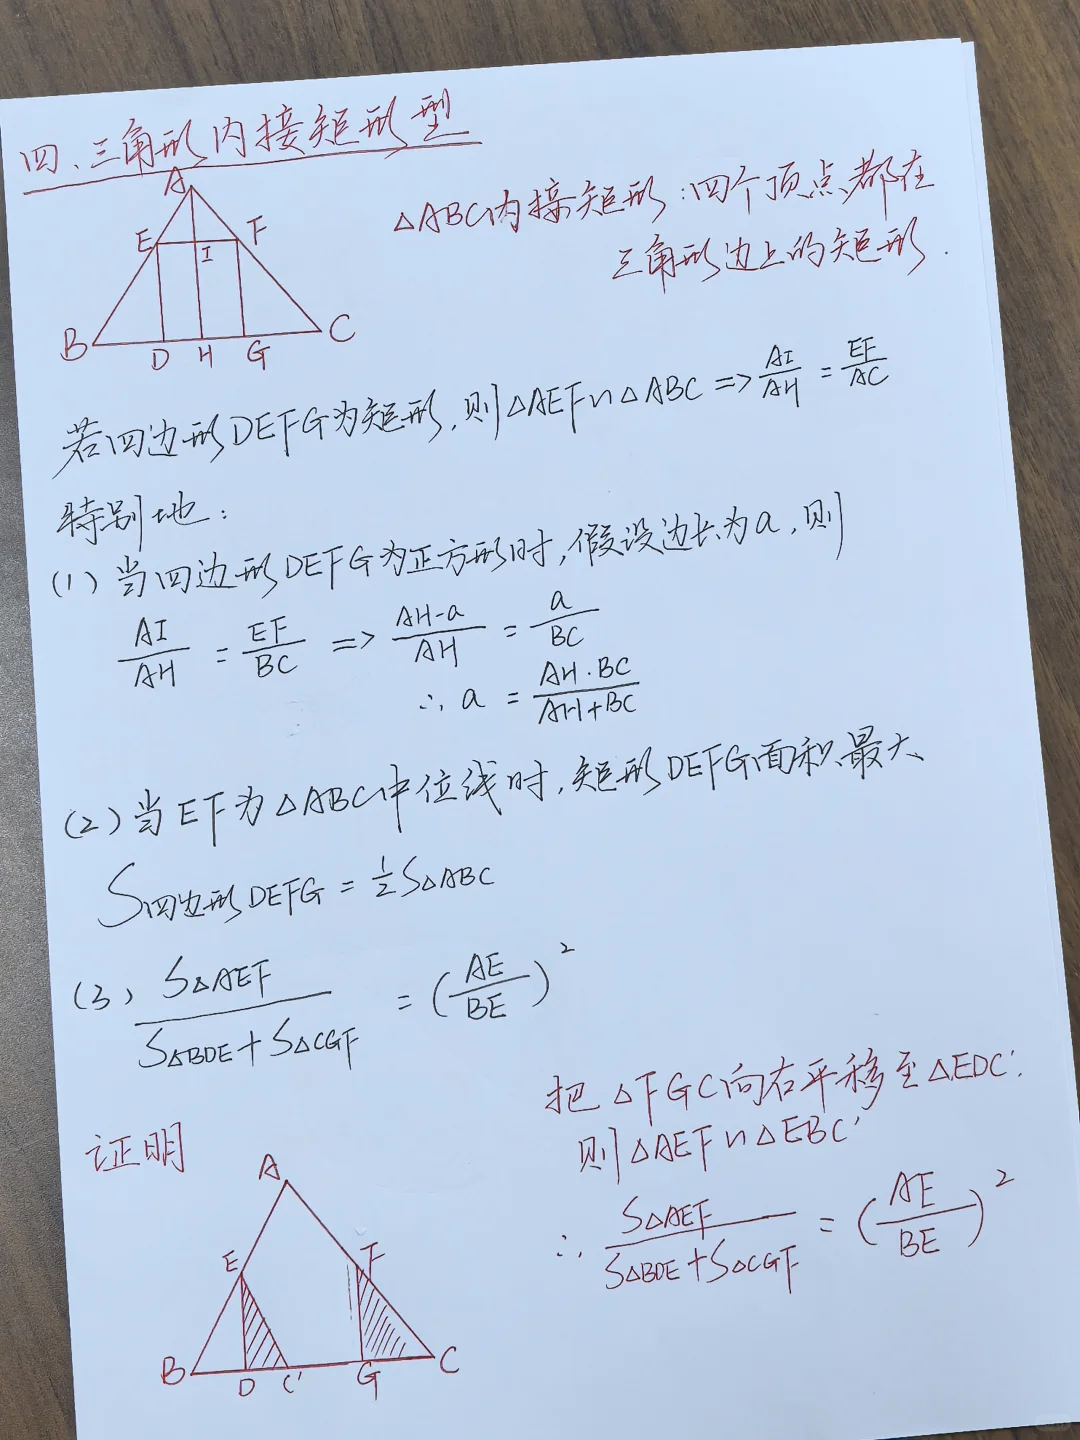 四、三角形内接矩形型
△ABC内接矩形：四个顶点都在
三角形边上的矩形.
A
E F
I
B D H G C
若四边形DEFG为矩形,则△AEF∽△ABC => AI/AH = EF/AC
特别地：
(1) 当四边形DEFG为正方形时,假设边长为a,则
AI/AH = EF/BC => AH-a/AH = a/BC
∴ a = AH·BC/AH+BC
(2) 当EF为△ABC中位线时,矩形DEFG面积最大
S四边形DEFG = 1/2 S△ABC
(3) S△AEF/S△BDE+S△CGF = (AE/BE)²
把△FGC向右平移至△EDC'.
则△AEF∽△EBC'
证明
∴ S△AEF/S△BDE+S△CGF = (AE/BE)²
A
E F
B D C' G C